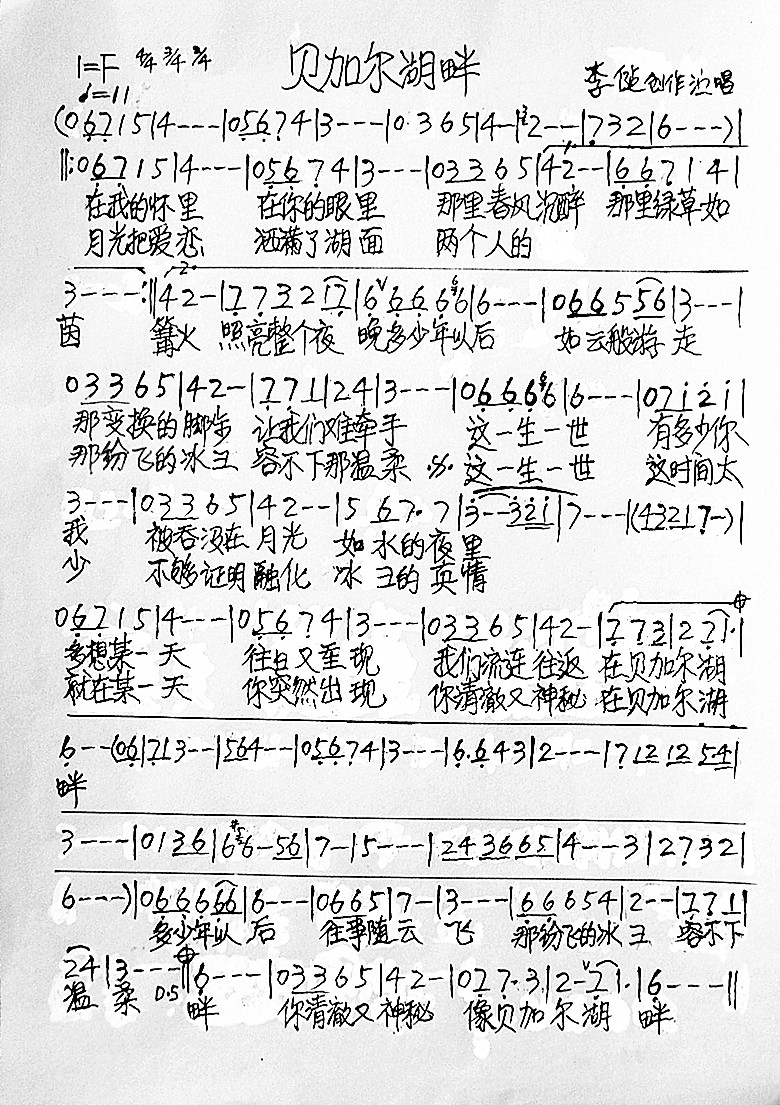 贝加尔湖畔
1=F 4/4 3/4 2/4
♩=11
李健创作演唱
(067 15|4---|056 74|3---|0 365|4-|2--|7 32|6---)|
‖:067 15|4---|056 74|3---|03365|42--|66 71 4|
在我的怀里 在你的眼里 那里春风沉醉 那里绿草如
月光把爱恋 洒满了湖面 两个人的
3----:‖42-|7 7 32 17|6ˇ66 66|6---|066556|3---|
茵 篝火 照亮整个夜 晚多少年以后 如云般游 走
03365|42-|771|24|3---|06666|6---|071̇2̇1̇|
那变换的脚步 让我们难牵手 这一生一世 有多少你
那纷飞的冰玉 容不下那温柔 .%. 这一生一世 这时间太
3---|03365|42--|5 67·7|3̇--3̇2̇1̇|7---|(43217-)|
我 被吞没在月光 如水的夜里
少 不够证明融化 冰玉的真情
067 15|4---|056 74|3---|03365|42-|773|2 71·|
多想某一天 往日又重现 我们流连往返 在贝加尔湖
就在某一天 你突然出现 你清澈又神秘 在贝加尔湖
6---(06|713--|564--|056 74|3---|6·643|2---|71212 5·4|
畔
3----|0136|66-56|7-|5---|243665|4--3|2732|
6---)|066666|6---|0665|7-|3---|66654|2--|771|
多少年以 后 往事随云 飞 那纷飞的冰玉 容不下
24|3----‖6----|03365|42-|027·3|2-ˇ21·|6----‖
温 柔 D.S 畔 你清澈又神秘 像贝加尔湖 畔